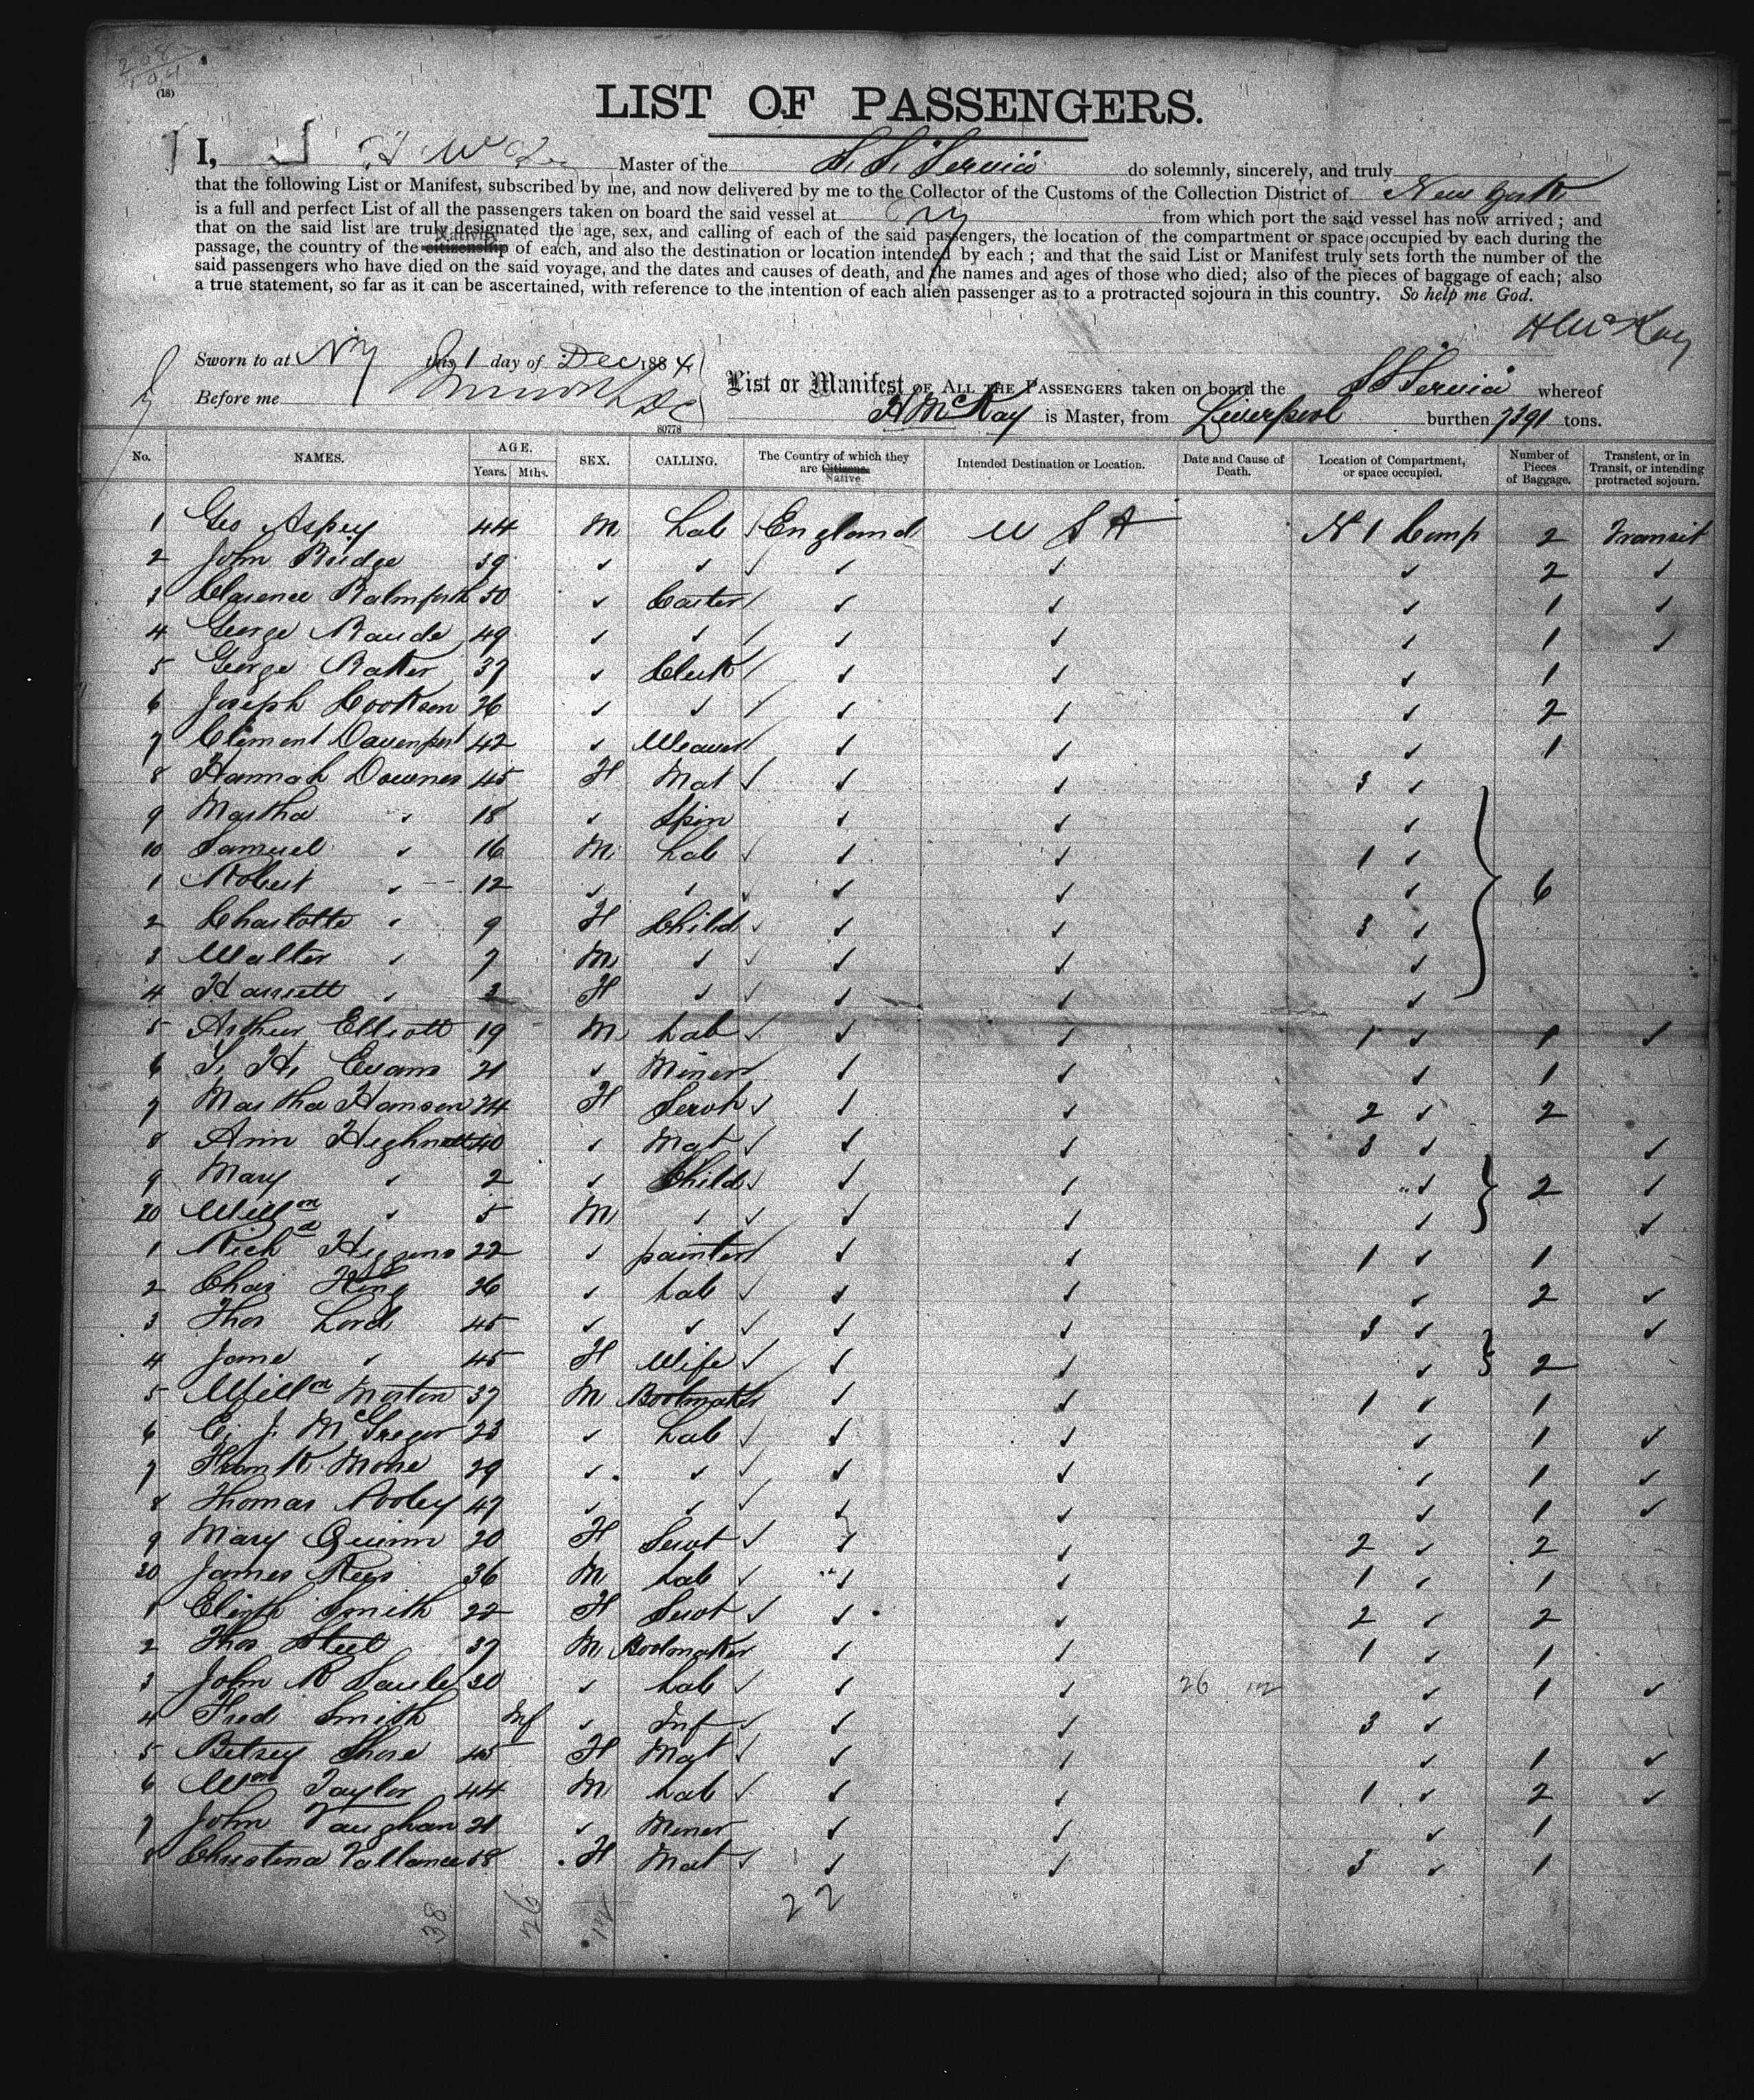 (18)
LIST OF PASSENGERS.
I, Master of the S.S. Servia do solemnly, sincerely, and truly
that the following List or Manifest, subscribed by me, and now delivered by me to the Collector of the Customs of the Collection District of New York
is a full and perfect List of all the passengers taken on board the said vessel at from which port the said vessel has now arrived ; and
that on the said list are truly designated the age, sex, and calling of each of the said passengers, the location of the compartment or space occupied by each during the
passage, the country of the citizenship Nativity of each, and also the destination or location intended by each ; and that the said List or Manifest truly sets forth the number of the
said passengers who have died on the said voyage, and the dates and causes of death, and the names and ages of those who died; also of the pieces of baggage of each; also
a true statement, so far as it can be ascertained, with reference to the intention of each alien passenger as to a protracted sojourn in this country. So help me God.
H McKay
Sworn to at NY this 1 day of Dec 1884
Before me
List or Manifest OF ALL THE PASSENGERS taken on board the SS Servia whereof
H McKay is Master, from Liverpool burthen 7391 tons.
80778
No. NAMES. AGE. Years. Mths. SEX. CALLING. The Country of which they are Citizens. Native. Intended Destination or Location. Date and Cause of Death. Location of Compartment, or space occupied. Number of Pieces of Baggage. Transient, or in Transit, or intending protracted sojourn.
1 Geo Aspey 44 M Lab ✓ England U S A N 1 Comp 2 Transit
2 John Bridge 39 ✓ ✓ ✓ ✓ ✓ ✓ 2 ✓
3 Clarence Balmforth 50 ✓ Carter ✓ ✓ ✓ 1 ✓
4 George Baude 49 ✓ ✓ ✓ ✓ ✓ 1 ✓
5 George Baker 37 ✓ Clerk ✓ ✓ ✓ 1
6 Joseph Cookson 26 ✓ ✓ ✓ ✓ ✓ 2
7 Clement Davenport 42 ✓ Weaver ✓ ✓ ✓ 1
8 Hannah Downes 45 F Mat ✓ ✓ ✓ 3 ✓
9 Martha ✓ 18 ✓ Spin ✓ ✓ ✓
10 Samuel ✓ 16 M Lab ✓ ✓ ✓ 1 ✓
1 Robert ✓ 12 ✓ ✓ ✓ ✓ ✓ ✓ 6
2 Charlotte ✓ 9 F Child ✓ ✓ ✓ 3 ✓
3 Walter ✓ 7 M ✓ ✓ ✓ ✓ ✓
4 Harriett ✓ F ✓ ✓ ✓ ✓ ✓
5 Arthur Elliott 19 M Lab ✓ ✓ ✓ 1 ✓ 1 ✓
6 S. H. Evans 21 ✓ Miner ✓ ✓ ✓ 1
7 Martha Hanson 24 F Servt ✓ ✓ ✓ 2 ✓ 2
8 Ann Highnett 40 ✓ Mat ✓ ✓ ✓ 3 ✓ ✓
9 Mary ✓ 2 ✓ Child ✓ ✓ ✓ ✓ 2 ✓
20 Willm ✓ 5 M ✓ ✓ ✓ ✓ ✓ ✓
1 Richd Higgins 22 ✓ painter ✓ ✓ 1 ✓ 1
2 Chas King 26 ✓ Lab ✓ ✓ ✓ ✓ 2 ✓
3 Thos Lord 45 ✓ ✓ ✓ ✓ ✓ 3 ✓ ✓
4 Jane ✓ 45 F Wife ✓ ✓ ✓ ✓ 2
5 Willm Morton 37 M Bootmaker ✓ ✓ 1 ✓ 1
6 C. J. McGregor 23 ✓ Lab ✓ ✓ ✓ ✓ 1 ✓
7 Frank Morse 29 ✓ ✓ ✓ ✓ ✓ ✓ 1 ✓
8 Thomas Pooley 47 ✓ ✓ ✓ ✓ ✓ 1 ✓
9 Mary Quinn 20 F Servt ✓ ✓ ✓ 2 ✓ 2
30 James Rees 36 M Lab ✓ ✓ ✓ 1 ✓ 1
1 Elizth Smith 22 F Servt ✓ ✓ ✓ 2 ✓ 2
2 Thos Steel 37 M Bootmaker ✓ ✓ 1 ✓ 1
3 John R 30 ✓ Lab ✓ ✓ ✓ 26 12 ✓ 1 ✓
4 Fred Smith Inf ✓ Inf ✓ ✓ ✓ 3 ✓
5 Betsey Shore 45 F Mat ✓ ✓ ✓ ✓ 1 ✓
6 Wm Taylor 44 M Lab ✓ ✓ ✓ 1 ✓ 2 ✓
7 John Vaughan 21 ✓ Miner ✓ ✓ ✓ 1
8 Christina Vallance 58 F Mat ✓ ✓ ✓ 3 ✓ 1
38 26 12 22